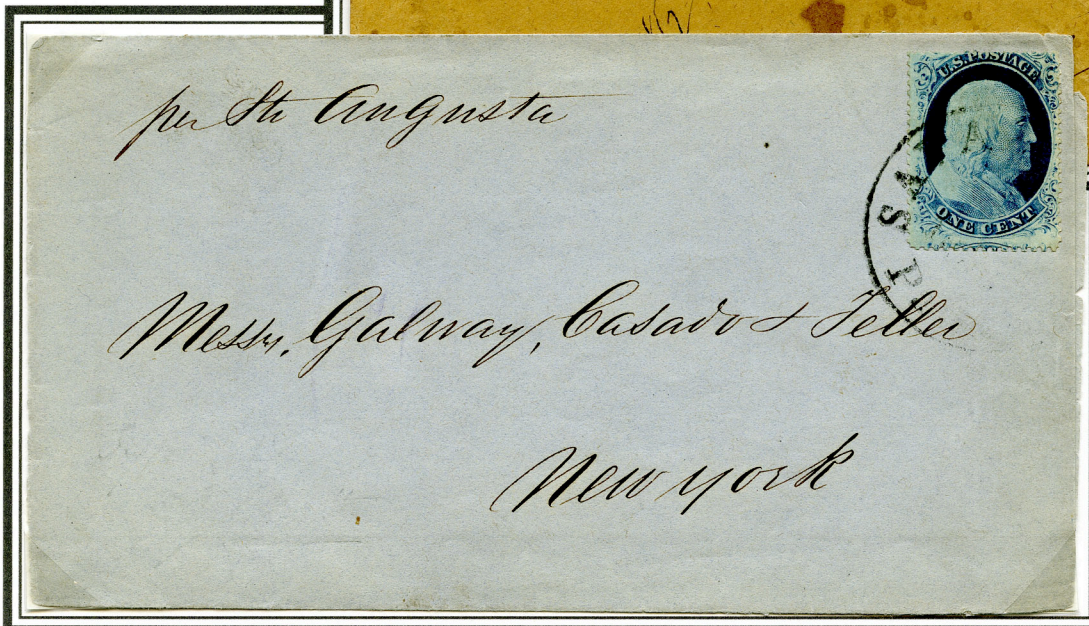 per Str Augusta
U.S. POSTAGE
ONE CENT
Messrs. Galway, Casado & Teller
New York